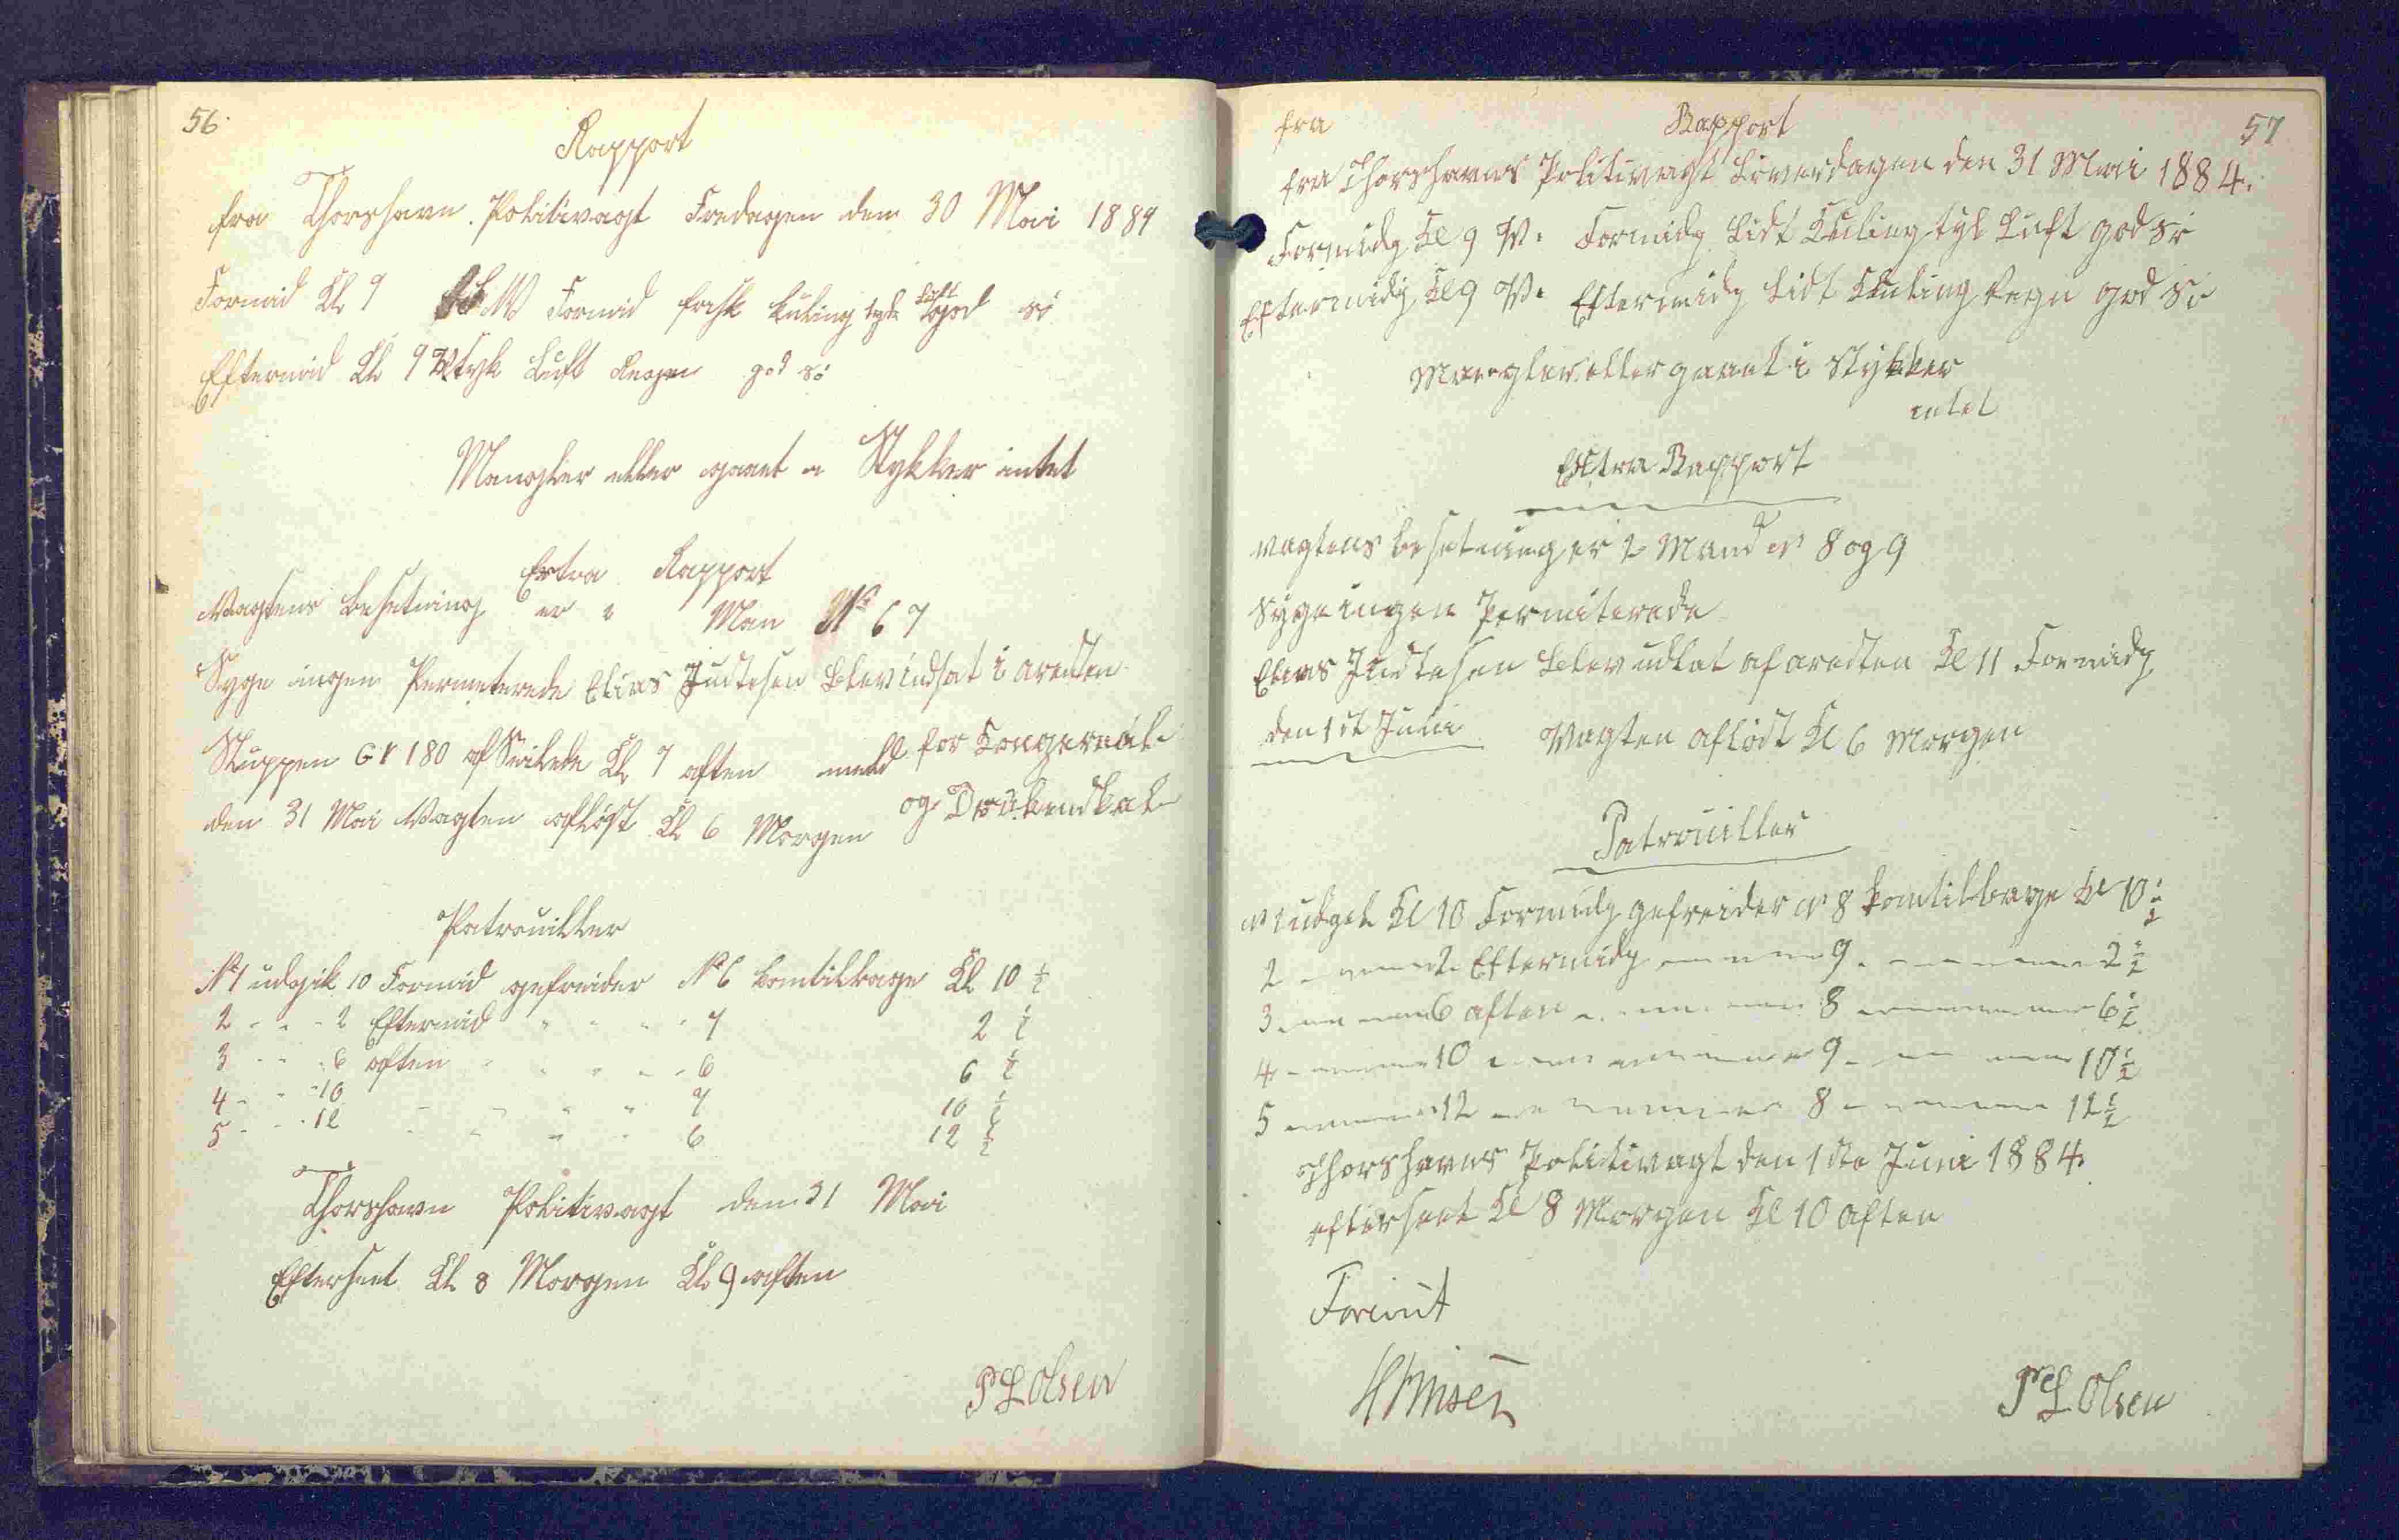 56.
Rapport
fra Thorshavn Politivagt Fredagen den 30 Mai 1884
Formid Kl 9 W Formid frisk Kuling tyk Luft god sö
Eftermid Kl 9 W tyk Luft Regen god sö
Mangler eller gaaet i Stykker intet
Extra Rapport
Vagtens besetning er 2 Man No 6 7
Syge ingen Permeterede Elias Justesen Blev indsat i aresten
Sluppen GR 180 afSeilede Kl 7 aften
den 31 Mai Vagten aflöst Kl 6 Morgen og Drukenskab
Patrouiller
No 1 udgik 10 Formid gefreider No 6 komtilbage Kl 10 1/2
2 - - - 2 Eftermid - - - - 7 2 1/2
3 - - - 6 aften - - - - 6 6 1/2
4 - - - 10 - - - - 7 10 1/2
5 - - - 12 - - - - 6 12 1/2
Thorshavn Politivagt den 31 Mai
Efterseet Kl 8 Morgen Kl 9 aften
P L Olsen
fra Rapport 57
fra Thorshavns Politivagt Löverdagen den 31 Mai 1884.
Formidg Kl 9 W. Formidg Lidt Kuling tyk Luft god sö
Eftermidg Kl 9 W. Eftermidg Lidt Kuling Regn god Sö
Mangler eller gaaet i Stykker
intet
Extra Rapport
vagtens besetning er 2 Mand No 8 og 9
Syge ingen Permiterede
Elias Justesen Blev udlat af aresten Kl 11 Formidg
den 1st Juni Vagten aflöst Kl 6 Morgen
Patrouiller
No 1 udgek Kl 10 Formidg gefreider No 8 komtilbage Kl 10 1/2
2 - - - 2 Eftermidg - - - 9 - - - 2 1/2
3 - - - 6 aften - - - 8 - - - 6 1/2
4 - - - 10 - - - 9 - - - 10 1/2
5 - - - 12 - - - 8 - - - 12 1/2
Thorshavns Politivagt den 1ste Juni 1884.
efterseet Kl 8 Morgen Kl 10 aften
P L Olsen